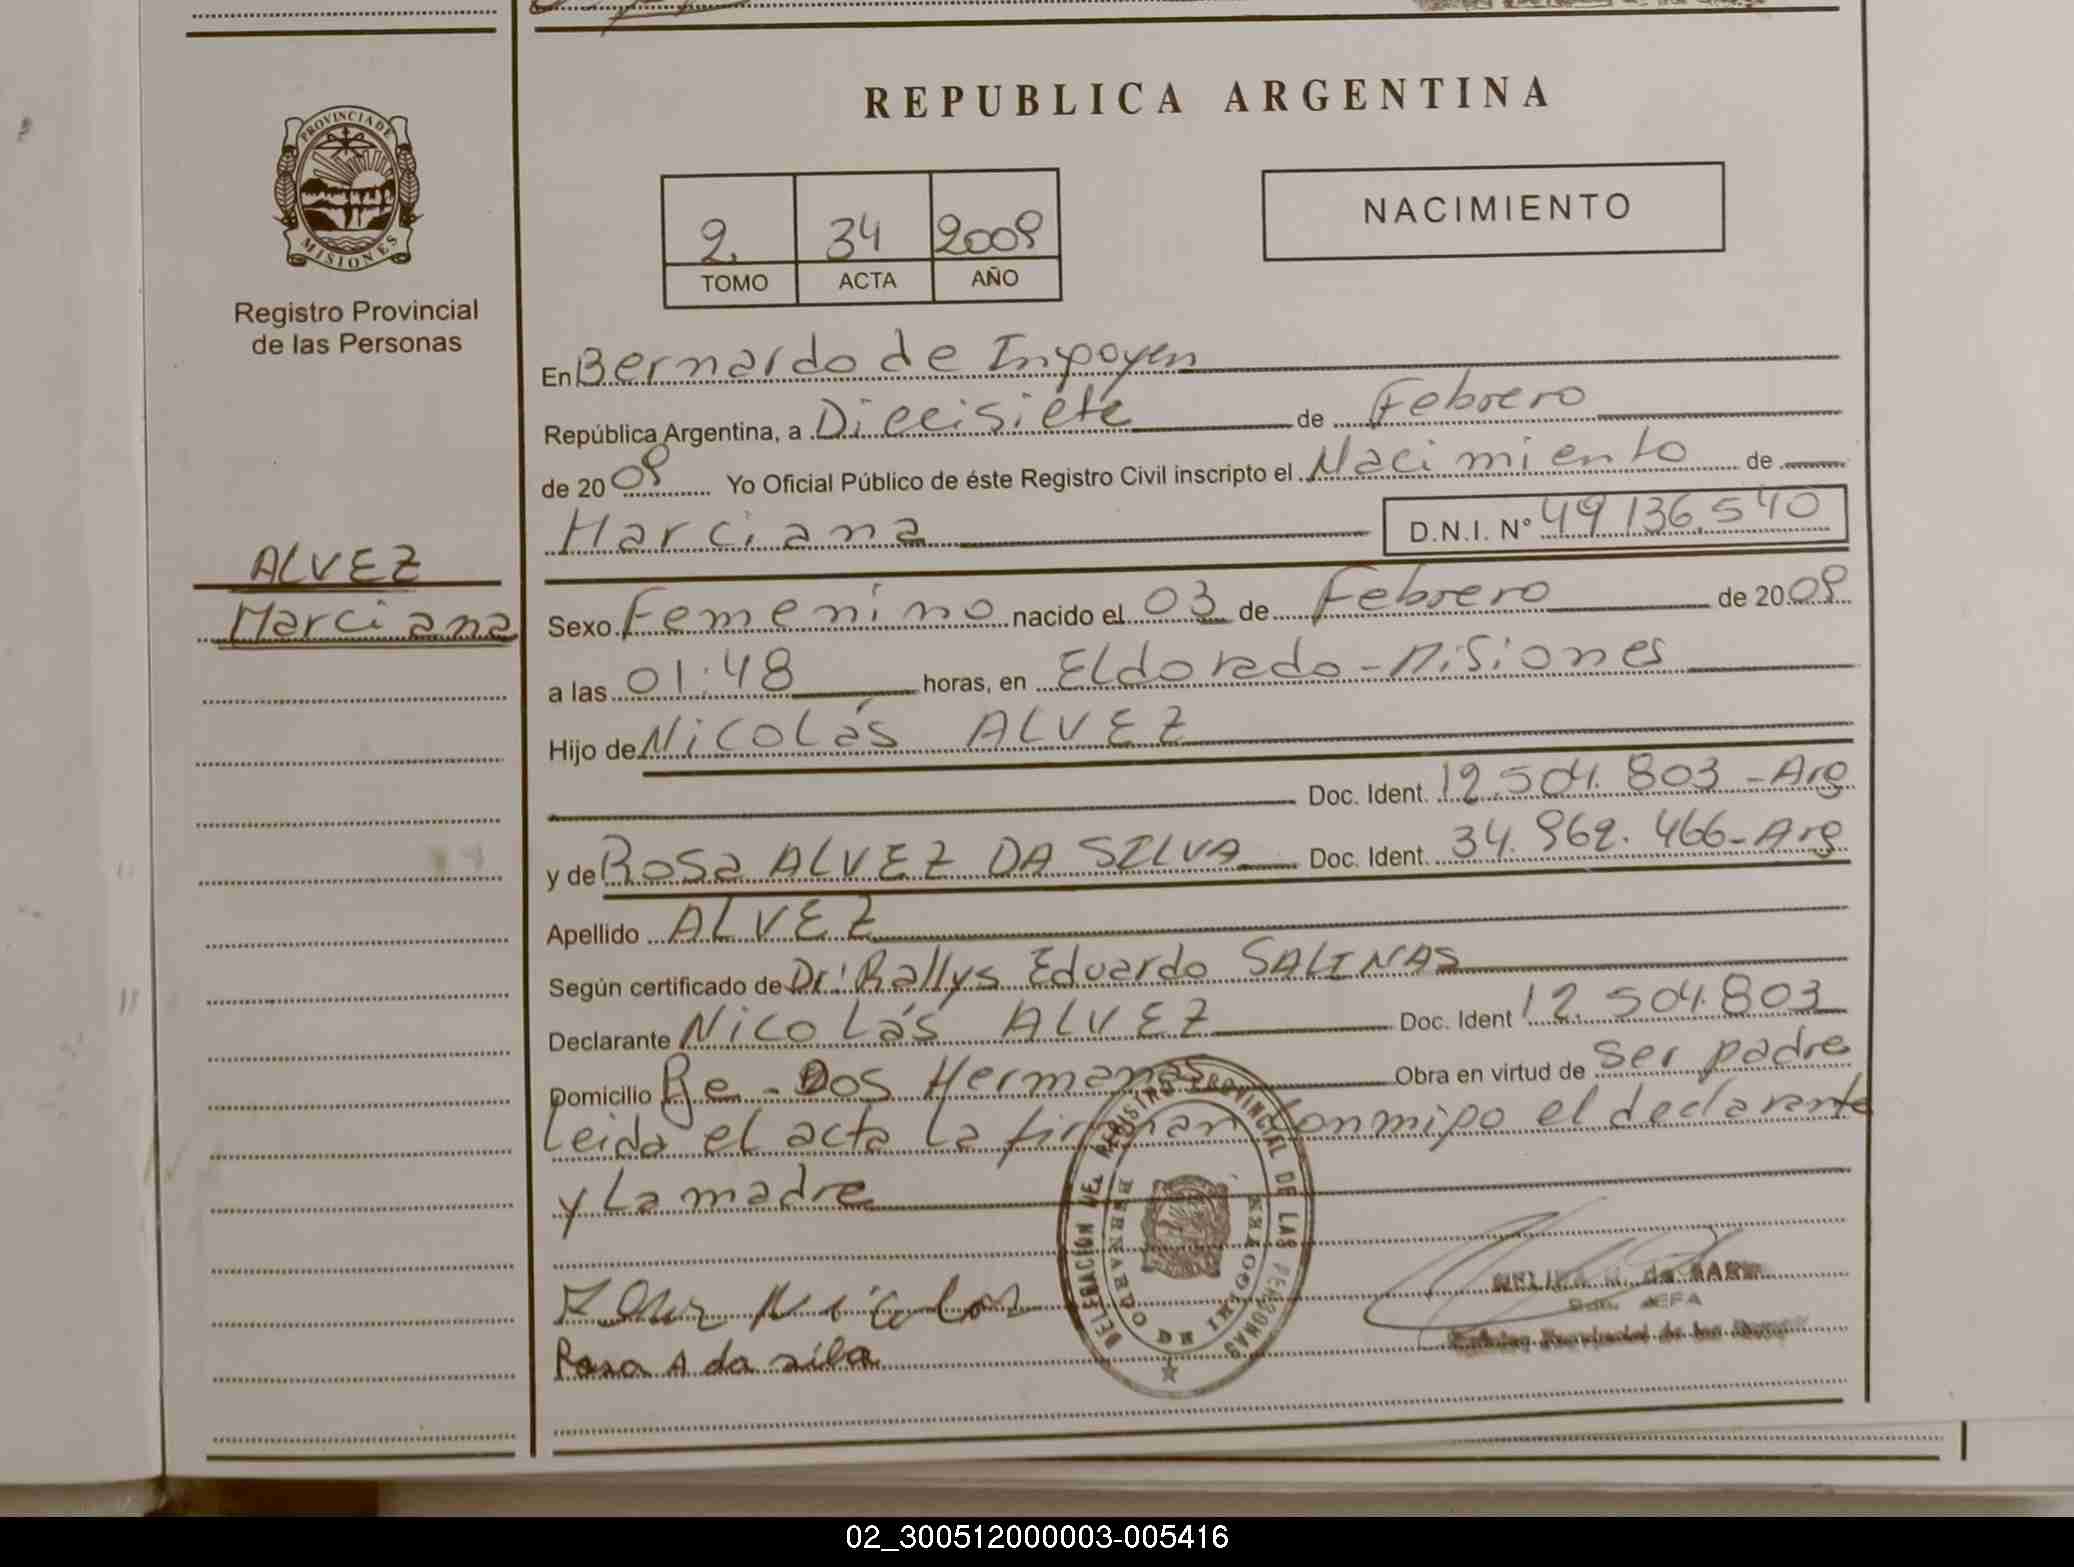 REPUBLICA ARGENTINA
PROVINCIA DE MISIONES
Registro Provincial
de las Personas
2. 34 2009
TOMO ACTA AÑO
NACIMIENTO
En Bernardo de Irigoyen
República Argentina, a Diecisiete de Febrero
de 2009 Yo Oficial Público de éste Registro Civil inscripto el Nacimiento de
Marciana D.N.I. N° 49 136.540
ALVEZ
Marciana
Sexo Femenino nacido el 03 de Febrero de 2009
a las 01:48 horas, en Eldorado - Misiones
Hijo de Nicolás ALVEZ
Doc. Ident. 12.504.803 - Arg
y de Rosa ALVEZ DA SILVA Doc. Ident. 34.962.466 - Arg
Apellido ALVEZ
Según certificado de Dr: Rallys Eduardo SALINAS
Declarante Nicolás ALVEZ Doc. Ident 12.504.803
Domicilio Pje - Dos Hermanas Obra en virtud de ser padre
Leida el acta la firman conmigo el declarante
y la madre
DELEGACION DEL REGISTRO PROVINCIAL DE LAS PERSONAS
BERNARDO DE IRIGOYEN
Nicolas
Rosa A da silva
JEFA
02_300512000003-005416